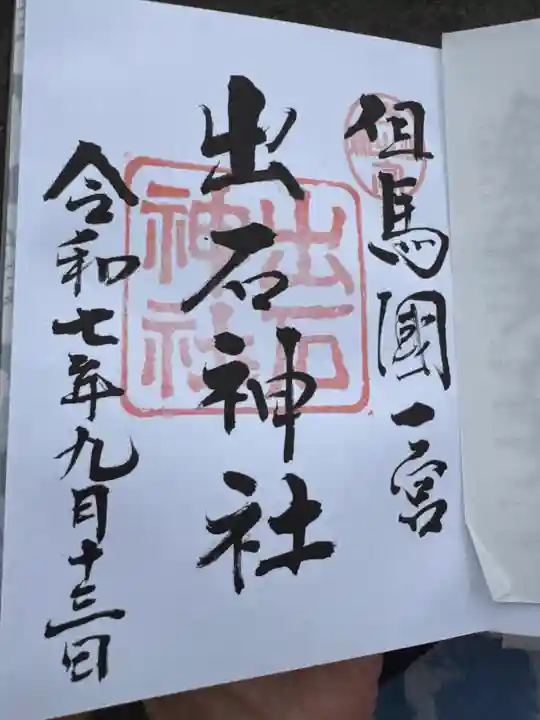 但馬國一宮
出石神社
出石
神社
令和七年九月十三日